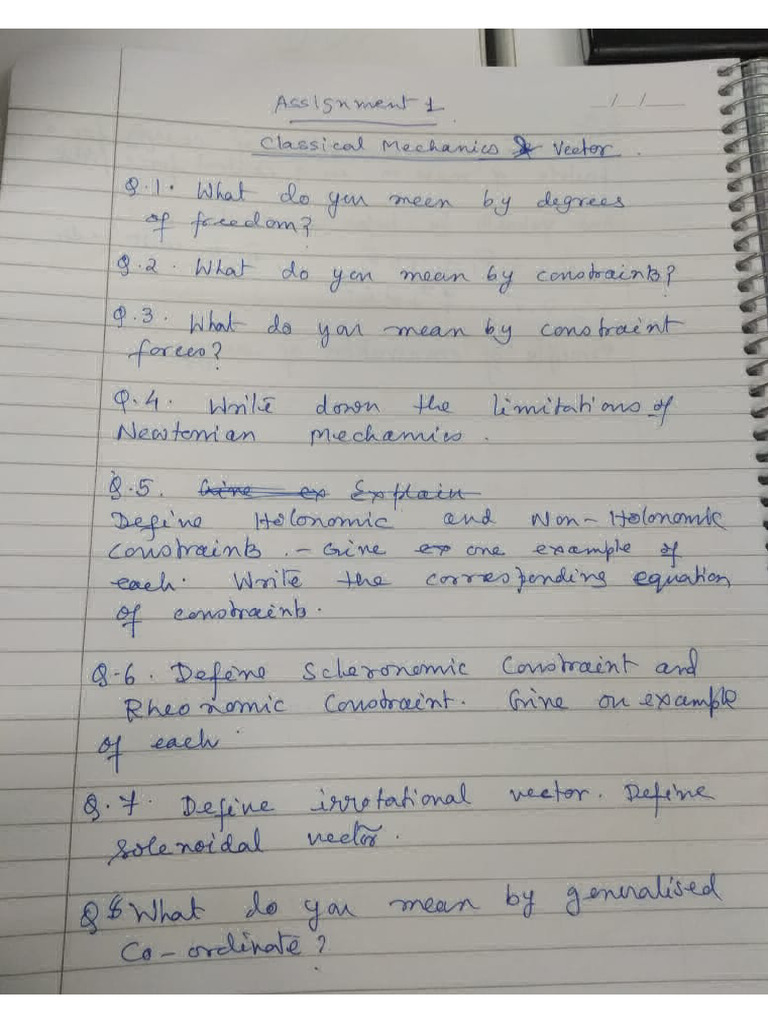 Assignment 1
/ /
Classical Mechanics & Vector.
Q.1. What do you meen by degrees
of freedom?
Q.2. What do you mean by constraints?
Q.3. What do you mean by constraint
forces?
Q.4. Write down the limitations of
Newtonian Mechanics.
Q.5. Give ex Explain
Define Holonomic and Non-Holonomic
constraints. - Give ex one example of
each. Write the corresponding equation
of constraints.
Q-6. Define Scleronomic Constraint and
Rheonomic Constraint. Give on example
of each.
Q.7. Define irrotational vector. Define
solenoidal vector.
Q8 What do you mean by generalised
Co-ordinate?